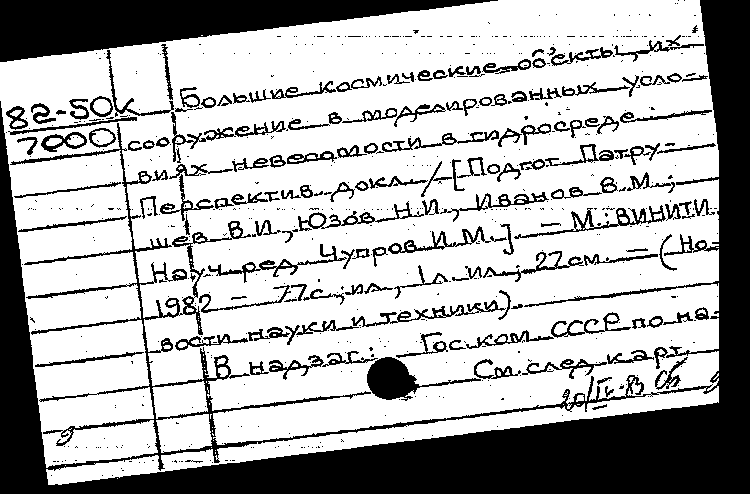 82-50к
7000
Большие космические объекты, их
сооружение в моделированных усло-
виях невесомости в гидросреде :
Перспектив. докл. / [Подгот. Патру-
шев В.И., Юзов Н.И., Иванов В.М.;
Науч. ред. Чупров И.М.]. — М.: ВИНИТИ
1982 — 77 с. ил., 1 л. ил.; 27 см. — (Но-
вости науки и техники).
В надзаг.: Гос. ком. СССР по на-
См. след. карт.
20/IV-83